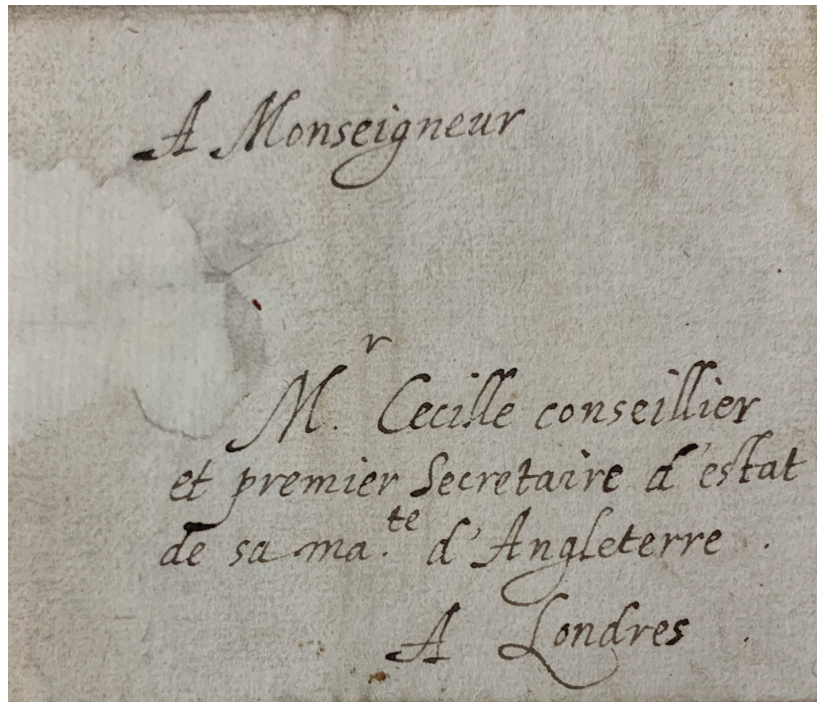 A Monseigneur
M.r Cecille conseillier
et premier Secretaire d'estat
de sa ma.te d'Angleterre.
A Londres